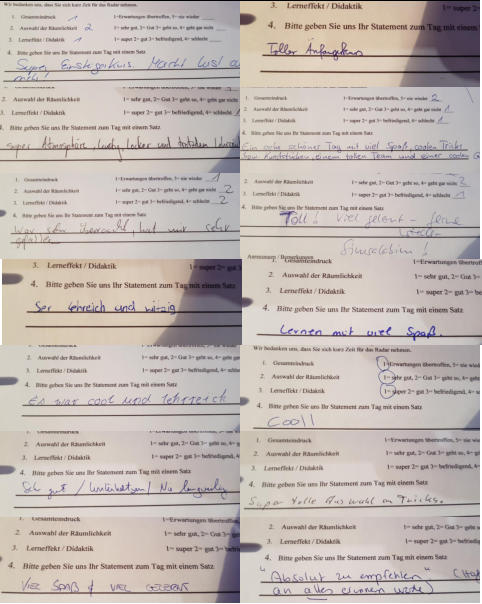 Wir bedanken uns, dass Sie sich kurz Zeit für das Radar nehmen.
1. Gesamteindruck 1 1=Erwartungen übertroffen, 5= nie wieder
2. Auswahl der Räumlichkeit 2 1= sehr gut, 2= Gut 3= geht so, 4= geht gar nicht
3. Lerneffekt / Didaktik 1 1= super 2= gut 3= befriedigend, 4= schlecht
4. Bitte geben Sie uns Ihr Statement zum Tag mit einem Satz
Super Einsteigerkurs. Macht Lust a
mehr!
3. Lerneffekt / Didaktik 1= super 2=
4. Bitte geben Sie uns Ihr Statement zum Tag mit einem
Toller Anfangskurs
1. Gesamteindruck 1=Erwartungen übertroffen, 5= nie wieder
2. Auswahl der Räumlichkeit 1= sehr gut, 2= Gut 3= geht so, 4= geht gar nicht 2
3. Lerneffekt / Didaktik 1= super 2= gut 3= befriedigend, 4= schlecht 1
4. Bitte geben Sie uns Ihr Statement zum Tag mit einem Satz
super Atmosphäre, lustig, locker und trotzdem
1. Gesamteindruck 1=Erwartungen übertroffen, 5= nie wieder 2
2. Auswahl der Räumlichkeit 1= sehr gut, 2= Gut 3= geht so, 4= geht gar nicht 1
3. Lerneffekt / Didaktik 1= super 2= gut 3= befriedigend, 4= schlecht 1
4. Bitte geben Sie uns Ihr Statement zum Tag mit einem Satz
Ein sehr schöner Tag mit viel Spaß, coolen Tricks
bzw. Kunststücken, einem tollen Team und einer coolen G
1. Gesamteindruck 1=Erwartungen übertroffen, 5= nie wieder 1
2. Auswahl der Räumlichkeit 1= sehr gut, 2= Gut 3= geht so, 4= geht gar nicht 2
3. Lerneffekt / Didaktik 1= super 2= gut 3= befriedigend, 4= schlecht 2
4. Bitte geben Sie uns Ihr Statement zum Tag mit einem Satz
War sehr überrascht, hat mir sehr
gefallen
2. Auswahl der Räumlichkeit 1= sehr gut, 2= Gut 3= geht so, 4= geht gar nicht 2
3. Lerneffekt / Didaktik 1= super 2= gut 3= befriedigend, 4= schlecht 1
4. Bitte geben Sie uns Ihr Statement zum Tag mit einem Satz
Toll! Viel gelernt -
Anmerkungen / Bemerkungen
3. Lerneffekt / Didaktik 1= super 2= gut 3
4. Bitte geben Sie uns Ihr Statement zum Tag mit einem Satz
Ser lehreich und witzig
1. Gesamteindruck 1=Erwartungen übertroffen
2. Auswahl der Räumlichkeit 1= sehr gut, 2= Gut 3=
3. Lerneffekt / Didaktik 1= super 2= gut 3= be
4. Bitte geben Sie uns Ihr Statement zum Tag mit einem Satz
Lernen mit viel Spaß.
Wir bedanken uns, dass Sie sich kurz Zeit für das Radar nehmen.
1. Gesamteindruck 1=Erwartungen übertroffen, 5= nie wieder
2. Auswahl der Räumlichkeit 1= sehr gut, 2= Gut 3= geht so, 4= geht gar
3. Lerneffekt / Didaktik 1= super 2= gut 3= befriedigend, 4= schl
4. Bitte geben Sie uns Ihr Statement zum Tag mit einem Satz
Es war cool und lehrreich
Wir bedanken uns, dass Sie sich kurz Zeit für das Radar nehmen.
1. Gesamteindruck 1=Erwartungen übertroffen, 5= nie wied
2. Auswahl der Räumlichkeit 1= sehr gut, 2= Gut 3= geht so, 4= geht
3. Lerneffekt / Didaktik 1= super 2= gut 3= befriedigend, 4= s
4. Bitte geben Sie uns Ihr Statement zum Tag mit einem Satz
Cool!
1. Gesamteindruck 1=Erwartungen übertroffen, 5= nie
2. Auswahl der Räumlichkeit 1= sehr gut, 2= Gut 3= geht so, 4= g
3. Lerneffekt / Didaktik 1= super 2= gut 3= befriedigend, 4
4. Bitte geben Sie uns Ihr Statement zum Tag mit einem Satz
Sehr gut / Unterhaltsam / Nie langweilig
1. Gesamteindruck 1=Erwartungen übertroffen, 5= nie wi
2. Auswahl der Räumlichkeit 1= sehr gut, 2= Gut 3= geht so, 4= geh
3. Lerneffekt / Didaktik 1= super 2= gut 3= befriedigend, 4=
4. Bitte geben Sie uns Ihr Statement zum Tag mit einem Satz
Super tolle Auswahl an Tricks.
1. Gesamteindruck 1=Erwartungen übertroffen,
2. Auswahl der Räumlichkeit 1= sehr gut, 2= Gut 3= geht
3. Lerneffekt / Didaktik 1= super 2= gut 3= befrie
4. Bitte geben Sie uns Ihr Statement zum Tag mit einem Satz
VIEL SPAß & VIEL GELERNT
2. Auswahl der Räumlichkeit 1= sehr gut, 2= Gut 3= geht s
3. Lerneffekt / Didaktik 1= super 2= gut 3= befriedi
4. Bitte geben Sie uns Ihr Statement zum Tag mit einem Satz
"Absolut zu empfehlen"
an alles erinnern werde)